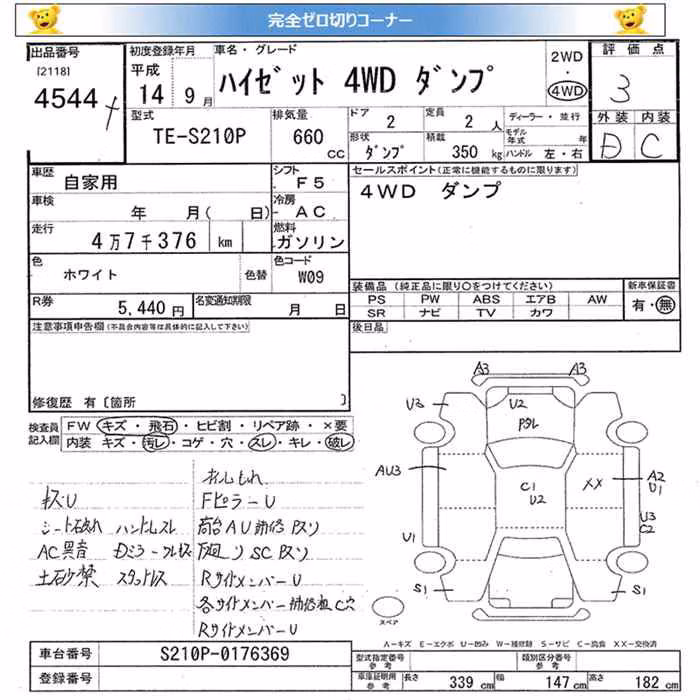 完全ゼロ切りコーナー
出品番号
[2118]
4544
初度登録年月
平成
14 9月
車名・グレード
ハイゼット 4WD ダンプ
2WD
・
4WD
評価点
3
外装 内装
D C
型式
TE-S210P
排気量
660
cc
ドア
2
定員
2人
ディーラー・並行
モデル年式 年
形状
ダンプ
積載
350 kg
ハンドル 左・右
車歴
自家用
シフト
F5
車検
年 月( 日)
冷房
AC
走行
4万7千376 km
燃料
ガソリン
色
ホワイト
色替
色コード
W09
R券
5,440円
名変通知期限
月 日
セールスポイント(正常に機能するものに限ります)
4WD ダンプ
装備品 (純正品に限り〇をつけてください)
PS PW ABS エアB AW
SR ナビ TV カワ
新車保証書
有・無
後日品
注意事項申告欄(不具合内容等は具体的に記入して下さい)
修復歴 有〔箇所 〕
検査員記入欄
FW キズ・飛石・ヒビ割・リペア跡・×要
内装 キズ・汚レ・コゲ・穴・スレ・キレ・破レ
キズU
シート破れ ハンドルスレ
AC異音
土砂禁 スタッドレス
FピラーU
荷台AU補修
RサイドメンバーU
各サイドメンバー補修
RサイドメンバーU
A3 A3
U3 U2
AU3 C1 U2 XX A2 U1
U3 C2
U1
S1 S1
スペア
A-キズ E-エクボ U-凹み W-補修跡 S-サビ C-腐食 XX-交換済
車台番号
S210P-0176369
登録番号
型式指定番号 参考
類別区分番号 参考
車庫証明用 参考
長さ 339 cm 幅 147 cm 高さ 182 cm